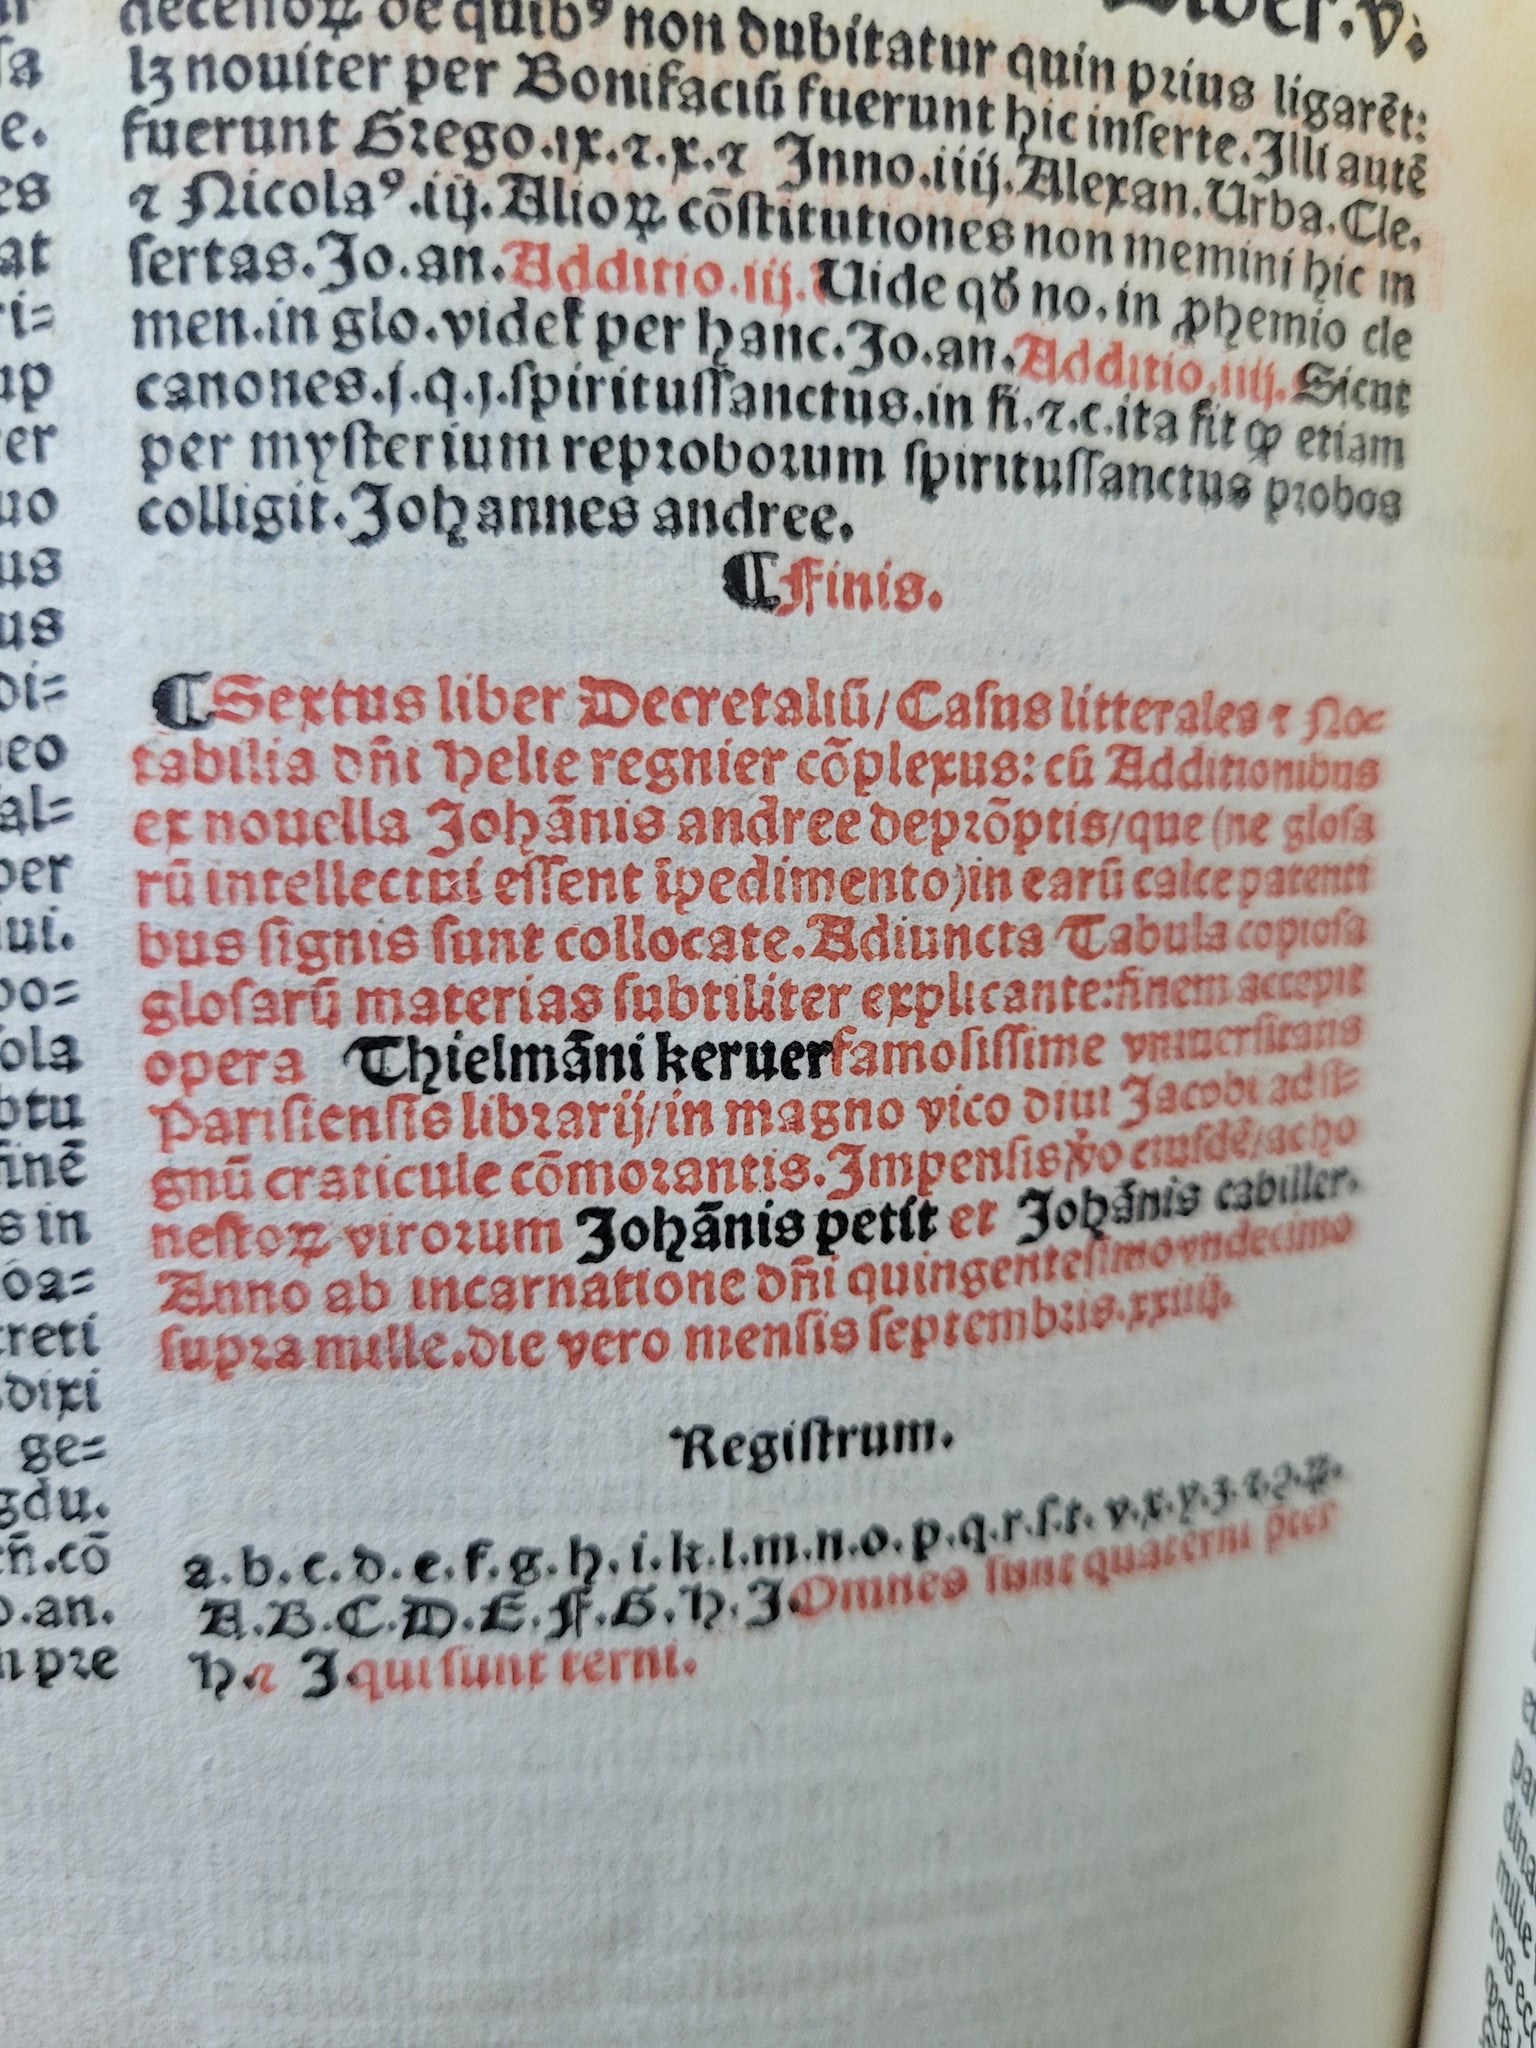 Liber.v.
decessoꝝ de quibꝰ non dubitatur quin prius ligarēt:
lꝫ nouiter per Bonifaciū fuerunt hic inserte. Illi autē
fuerunt Grego.ix.⁊.x.⁊ Inno.iiij. Alexan. Urba. Cle.
⁊ Nicolaꝰ.iij. Alioꝝ cōstitutiones non memini hic in
sertas. Jo. an. Additio.iij. Uide qđ no. in ꝓhemio cle
men. in glo. videt᷑ per hanc. Jo. an. Additio.iiij. Sicut
canones.j.q.j. spiritussanctus. in fi.⁊.c. ita fit ꝙ etiam
per mysterium reproborum spiritussanctus probos
colligit. Johannes andree.
¶ Finis.
¶ Sextus liber Decretaliū/ Casus litterales ⁊ No=
tabilia dn̄i Helie regnier cōplexus: cū Additionibus
ex nouella Johānis andree deprōptis/ que (ne glosa
rū intellectui essent īpedimento) in earū calce patenti
bus signis sunt collocate. Adiuncta Tabula copiosa
glosarū materias subtiliter explicante: finem accepit
opera Thielmāni keruer famosissime vniuersitatis
Parisiensis librarij/ in magno vico diui Jacobi ad si=
gnū craticule cōmorantis. Impensis v̓o eiusdē/ ac ho
nestoꝝ virorum Johānis petit et Johānis cabiller.
Anno ab incarnatione dn̄i quingentesimo vndecimo
supra mille. die vero mensis septembris. xxiiij.
Registrum.
a.b.c.d.e.f.g.h.i.k.l.m.n.o.p.q.r.s.t.v.x.y.z.⁊.ꝯ.ꝝ.
A.B.C.D.E.F.G.H.J. Omnes sunt quaterni p̄ter
H.⁊ J. qui sunt terni.